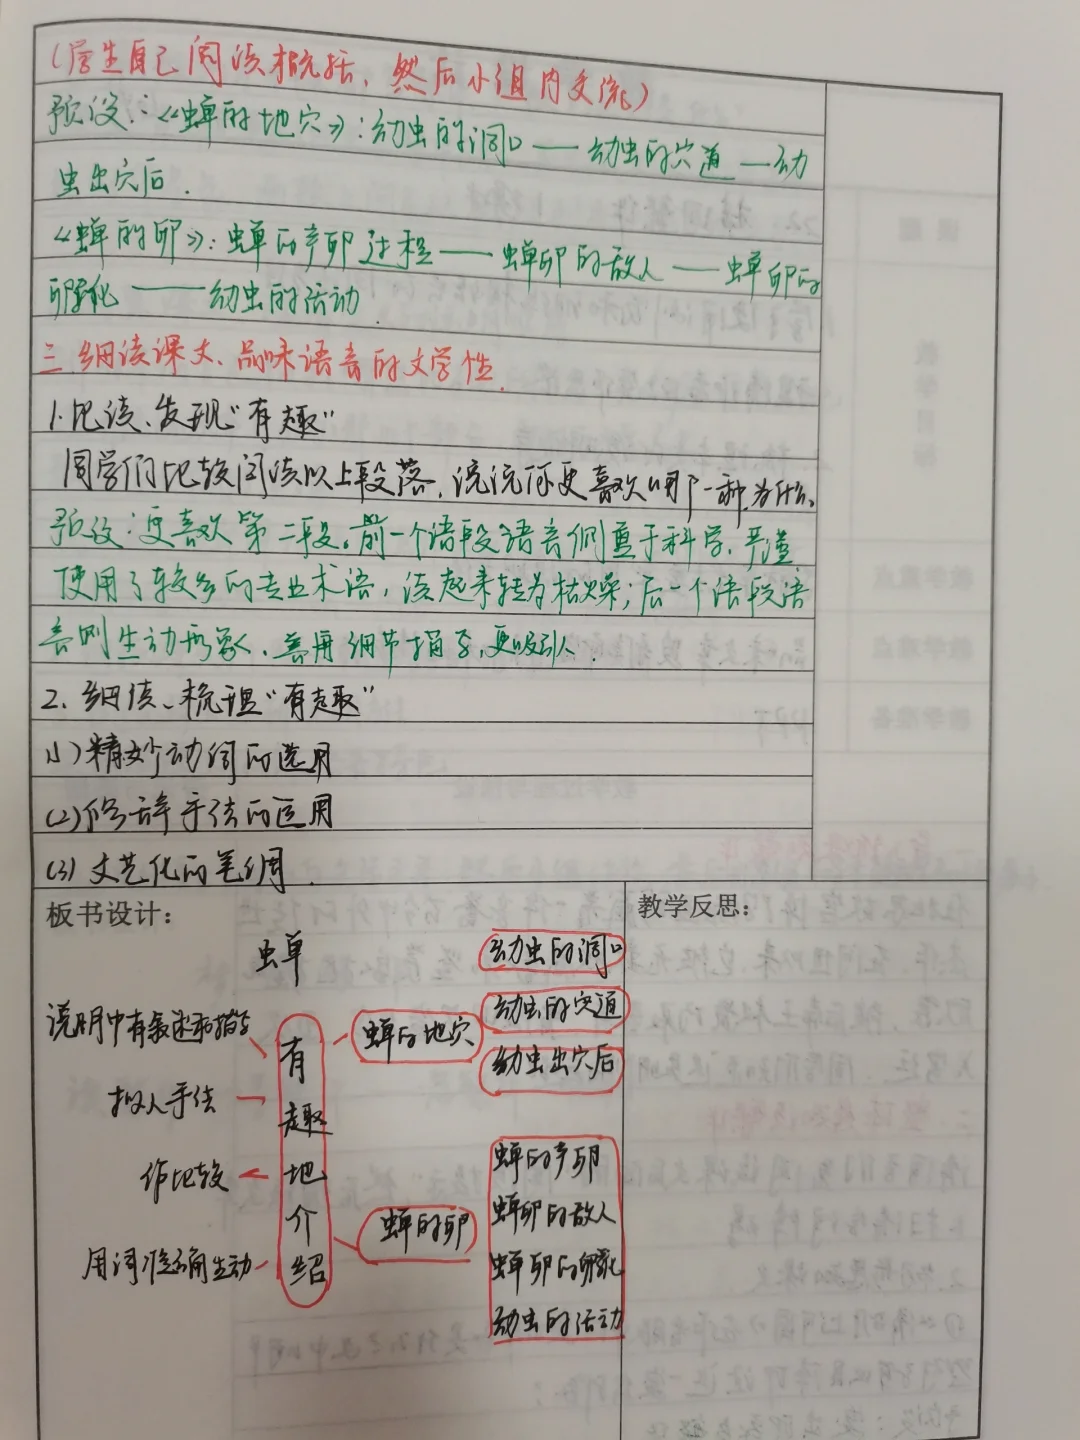 (学生自己阅读概括,然后小组内交流)
预设:《蝉的地穴》:幼虫的洞口——幼虫的穴道—幼
虫出穴后.
《蝉的卵》:蝉的产卵过程——蝉卵的敌人——蝉卵的
孵化——幼虫的活动
三.细读课文、品味语言的文学性.
1.比读、发现“有趣”
同学们比较阅读以上段落,说说你更喜欢哪一种,为什么.
预设:更喜欢第二段。前一个语段语言侧重于科学、严谨,
使用了较多的专业术语,读起来较为枯燥;后一个语段语
言则生动形象、善用细节描写,更吸引人.
2.细读、梳理“有趣”
(1)精妙动词的选用
(2)修辞手法的运用
(3)文艺化的笔调.
板书设计:
教学反思:
蝉
说明中有叙述和描写
拟人手法
作比较
用词准确生动
有趣地介绍
蝉的地穴
幼虫的洞口
幼虫的穴道
幼虫出穴后
蝉的卵
蝉的产卵
蝉卵的敌人
蝉卵的孵化
幼虫的活动